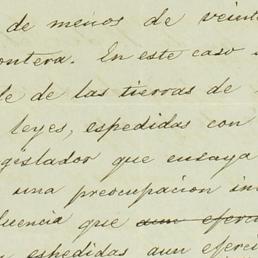 de menos de veint
ontera. En este caso
le de las tierras de
leyes, espedidas con
gislador que ensaya
una preocupacion in
luencia que aun ejerc
espedidas aun ejerci